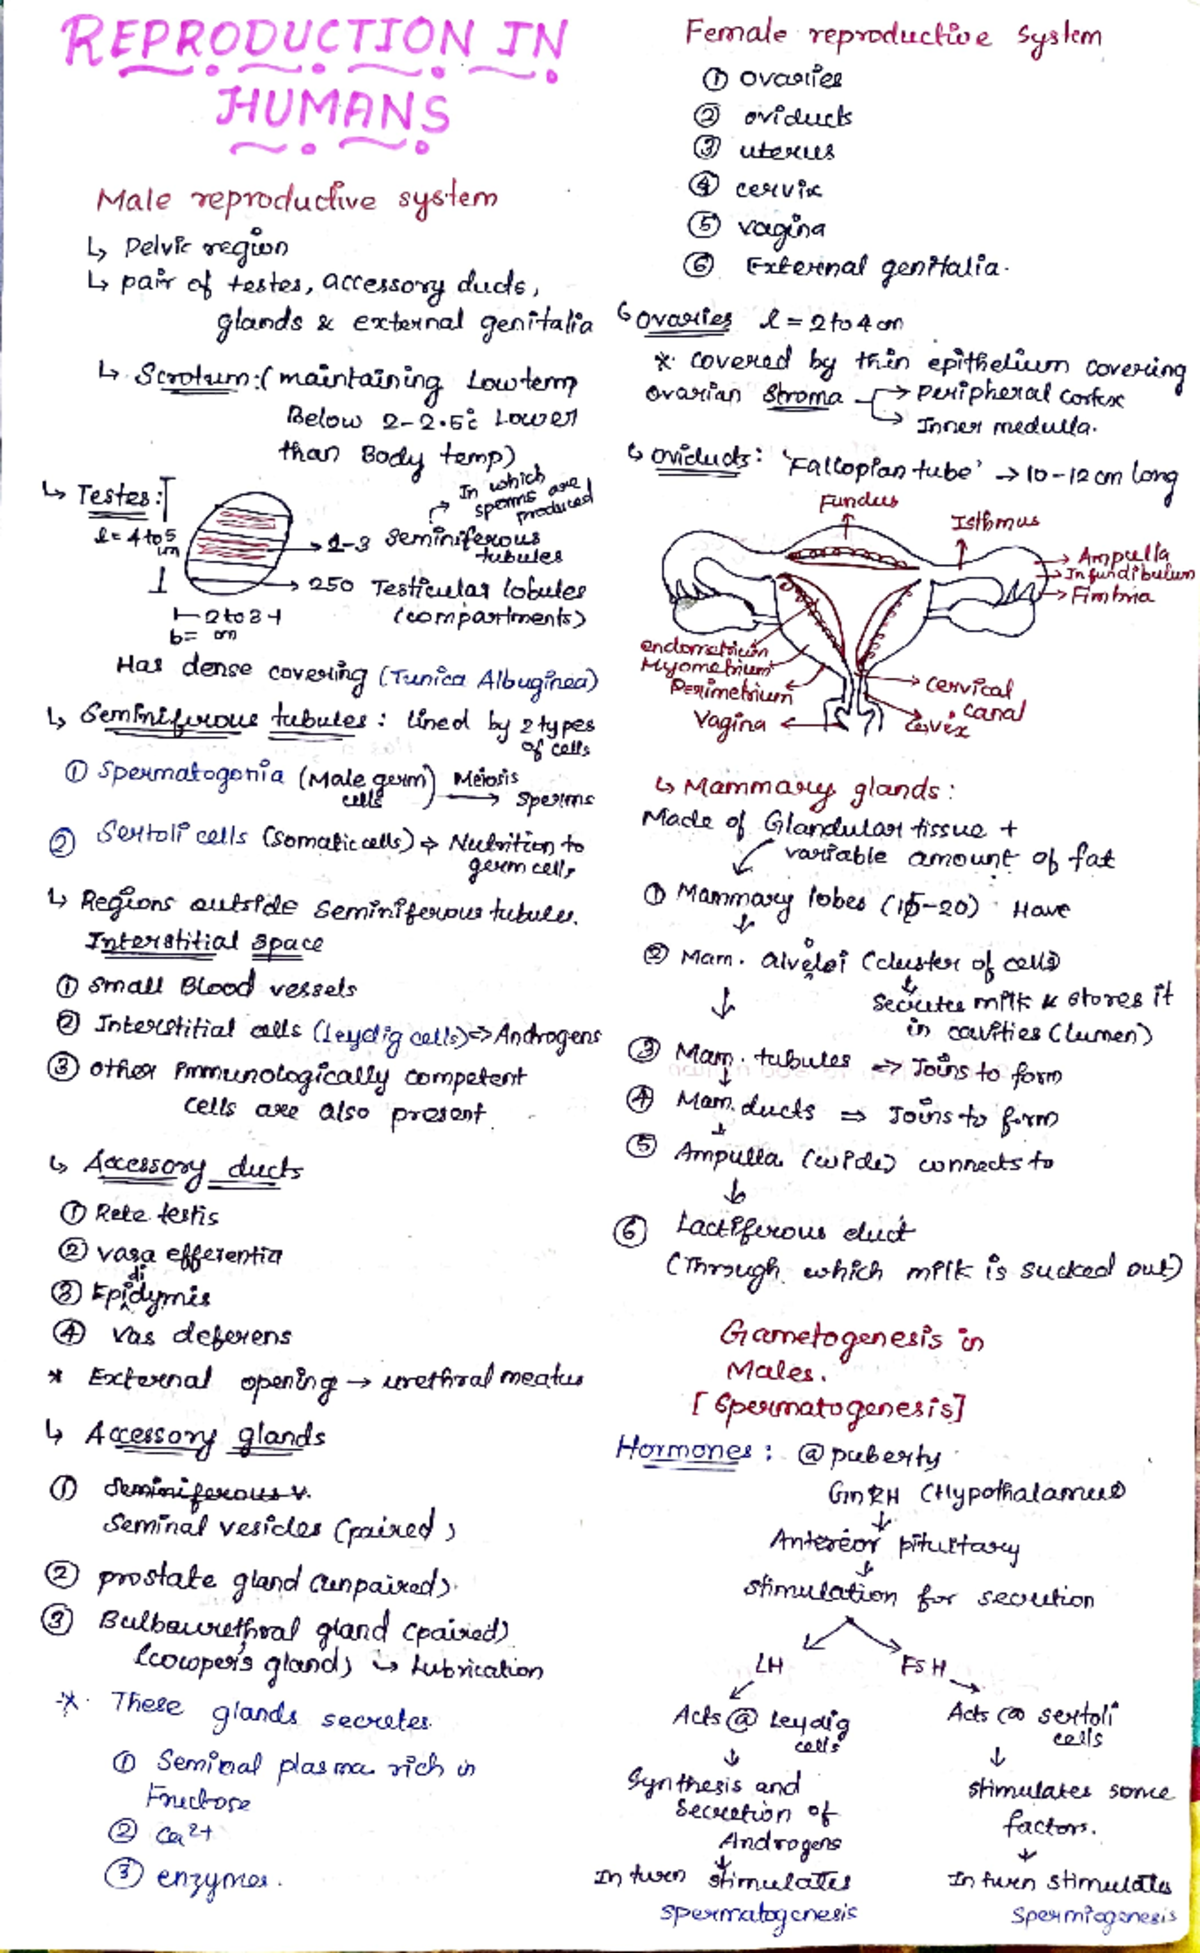 REPRODUCTION IN
HUMANS
Male reproductive system
↳ Pelvic region
↳ pair of testes, accessory ducts,
glands & external genitalia
↳ Scrotum:( maintaining Low temp
Below 2-2.5°C Lower
than Body temp)
↳ Testes:
l= 4 to 5
cm
In which
sperms are
produced
→ 1-3 Seminiferous
tubules
→ 250 Testicular lobules
(compartments)
2 to 3
b= cm
Has dense covering (Tunica Albuginea)
↳ Seminiferous tubules: lined by 2 types
of cells
① Spermatogonia (Male germ cells) Meiosis → Sperms
② Sertoli cells (Somatic cells) → Nutrition to
germ cells
↳ Regions outside Seminiferous tubule.
Interstitial space
① Small Blood vessels
② Interstitial cells (leydig cells) => Androgens
③ other Immunologically competent
cells are also present.
↳ Accessory ducts
① Rete testis
② vasa efferentia
③ Epididymis
④ vas deferens
* External opening → urethral meatus
↳ Accessory glands
① Seminiferous v.
Seminal vesicles (paired)
② prostate gland (unpaired).
③ Bulbourethral gland (paired)
(cowper's gland) ↳ Lubrication
* These glands secretes
① Seminal plasma rich in
Fructose
② Ca2+
③ enzymes.
Female reproductive system
① ovaries
② oviducts
③ uterus
④ cervix
⑤ vagina
⑥ External genitalia.
↳ ovaries l = 2 to 4 cm
* covered by thin epithelium covering
ovarian stroma → Peripheral cortex
→ Inner medulla.
↳ oviducts: 'Fallopian tube' → 10-12 cm long
Fundus
Isthmus
→ Ampulla
→ Infundibulum
→ Fimbria
endometrium
Myometrium
Perimetrium
Vagina
→ Cervical
canal
Cervix
↳ Mammary glands:
Made of Glandular tissue +
variable amount of fat
① Mammary lobes (15-20) Have
↓
② Mam. alveloi (cluster of cells)
↓
Secretes milk & stores it
in cavities (lumen)
↓
③ Mam. tubules => Joins to form
↓
④ Mam. ducts => Joins to form
↓
⑤ Ampulla (wide) connects to
↓
⑥ Lactiferous duct
(Through which milk is sucked out)
Gametogenesis in
Males.
[Spermatogenesis]
Hormones: @ puberty
GnRH (Hypothalamus)
↓
Anterior pituitary
↓
stimulation for secretion
LH FSH
Acts @ Leydig
cells
↓
Synthesis and
Secretion of
Androgens
↓
In turn stimulates
spermatogenesis
Acts @ sertoli
cells
↓
stimulates some
factors.
↓
In turn stimulates
Spermiogenesis